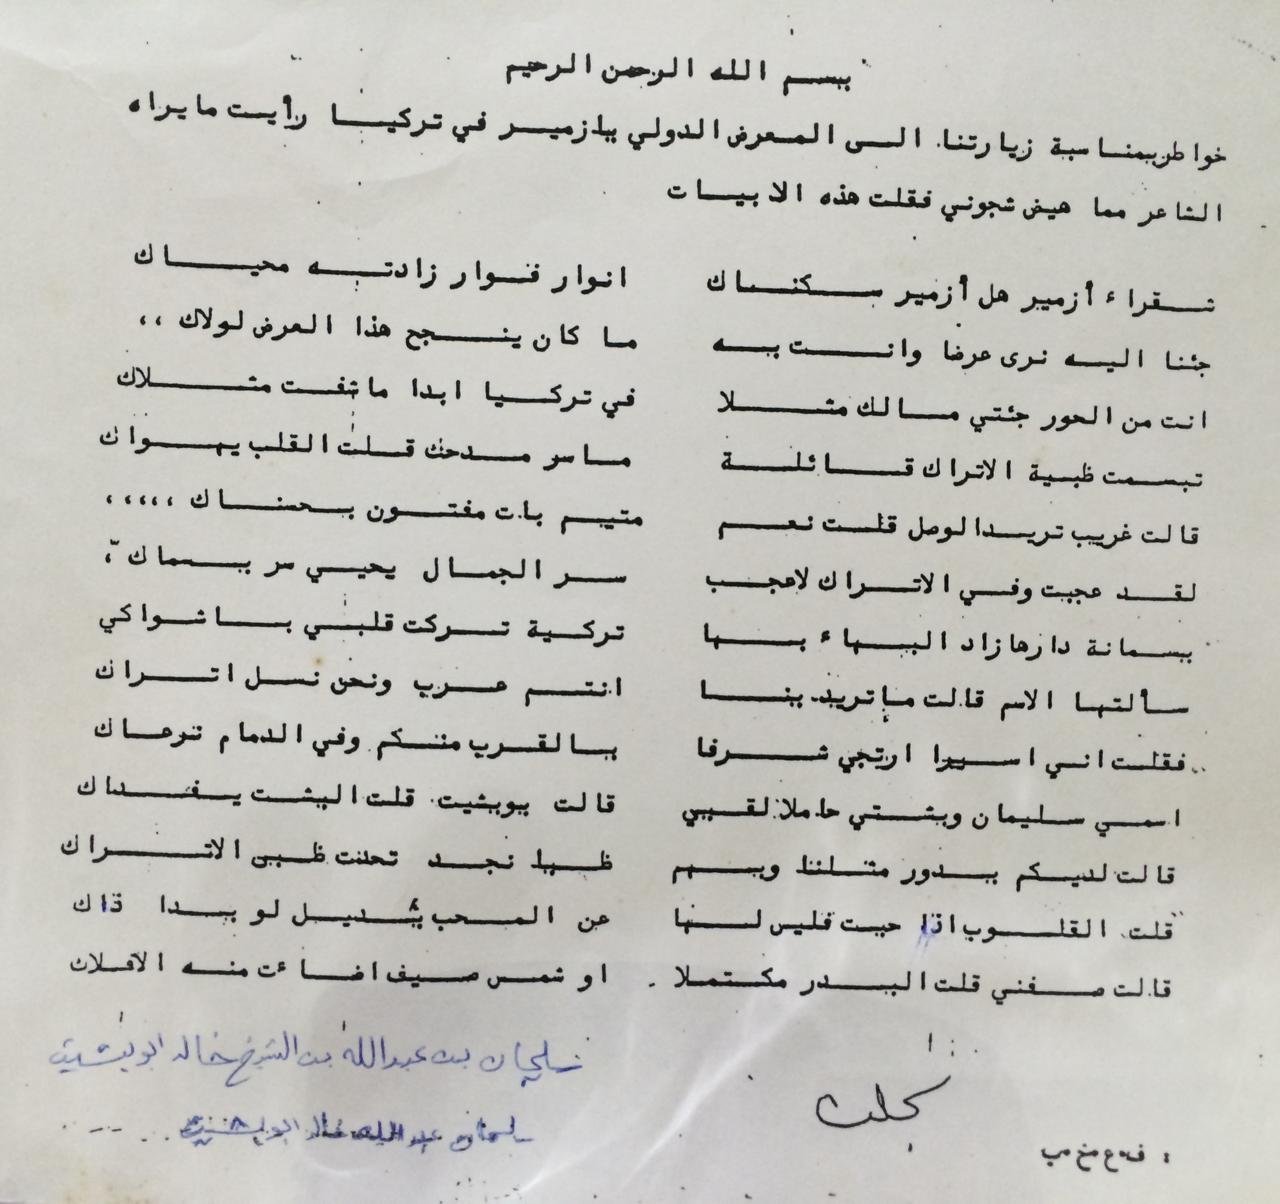 بسم الله الرحمن الرحيم
خواطر بمناسبة زيارتنا الى المعرض الدولي بازمير في تركيا رأيت ما يراه
الشاعر مما هيض شجوني فقلت هذه الابيات
شقراء أزمير هل أزمير سكناك انوار فوار زادته محياك
جئنا اليه نرى عرضا وانت به ما كان ينجح هذا العرض لولاك ،،
انت من الحور جئتي مالك مثلا في تركيا ابدا ما شفت مثلاك
تبسمت ظبية الاتراك قائلة ما سر مدحك قلت القلب يهواك
قالت غريب تريد الوصل قلت نعم متيم بات مفتون بحسناك ،،،،،
لقد عجبت وفي الاتراك لاعجب سر الجمال يحيي سر بسماك ،
بسمانة دارها زاد البهاء بها تركية تركت قلبي باشواكي
سألتها الاسم قالت ما تريد بنا انتم عرب ونحن نسل اتراك
فقلت اني اسيرا ارتجي شرفا بالقرب منكم وفي الدمام نرعاك
اسمي سليمان وبشتي حاملا لقبي قالت بوبشيت قلت البشت يفداك
قالت لديكم بدور مثلنا وبهم ظبا نجد تحدت ظبى الاتراك
قلت القلوب اذا حبت فليس لها عن المحب بديل لو بدا ذاك
قالت صفني قلت البدر مكتملا او شمس صيف اضاءت منه الافلاك
سليمان بن عبدالله بن الشيخ خالد ابو بشيت
سليمان عبدالله خالد ابو بشيت